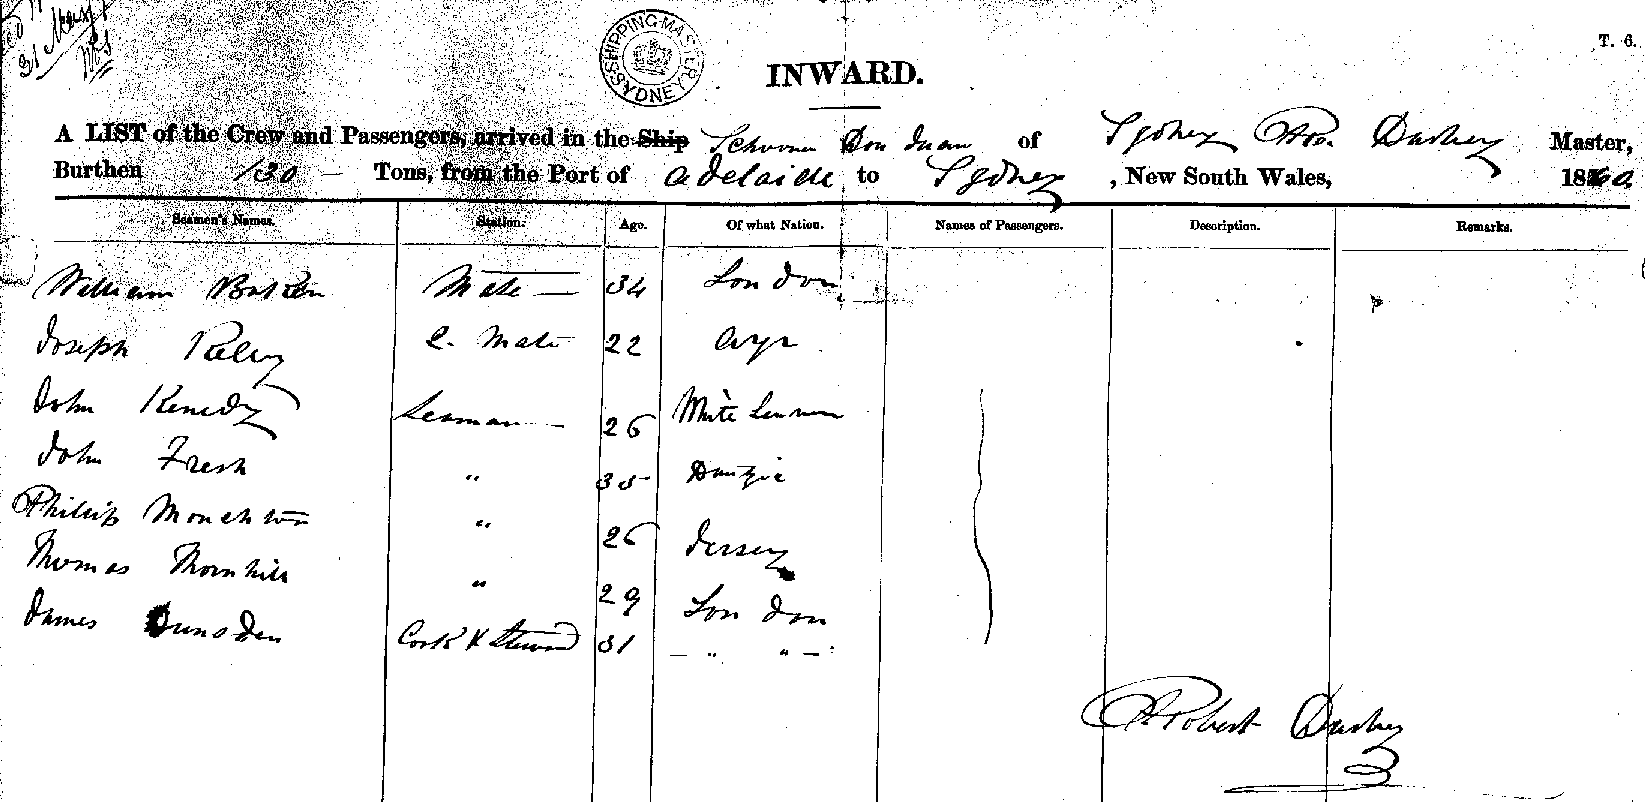 31 May
SHIPPING MASTER SYDNEY
T. 6.
INWARD.
A LIST of the Crew and Passengers, arrived in the Ship Schooner Don Juan of Sydney Robt. Master,
Burthen 130 Tons, from the Port of Adelaide to Sydney, New South Wales, 1860
Seamen's Names. Station. Age. Of what Nation. Names of Passengers. Description. Remarks.
William Mate 34 London
Joseph 2. Mate 22 Ayr
John Kenedy Seaman 26
John Fresh " 35 Dantzic
Philip Monckton " 26 Jersey
Thomas Thornhill " 29 London
James Dunsden Cook & Steward 31 " "
Robert